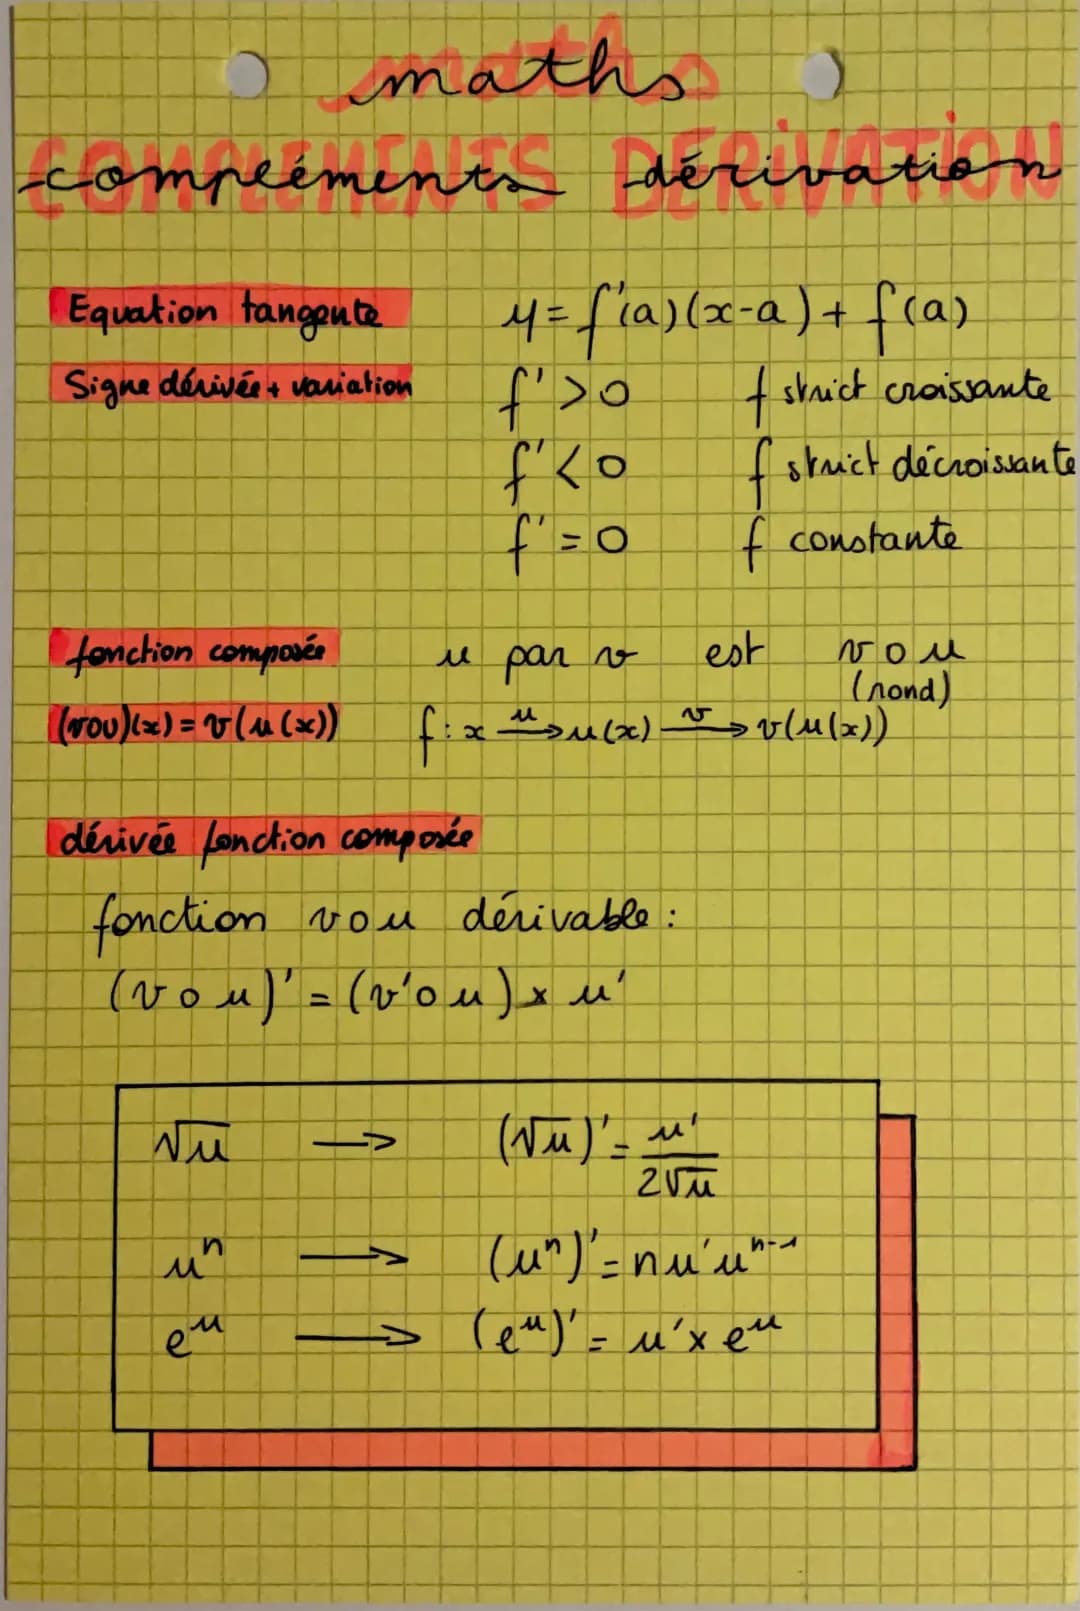 maths
COMPLÉMENTS DÉRIVATION
compléments dérivation
Equation tangente y = f'(a)(x-a) + f(a)
Signe dérivée + variation f' > 0 f strict croissante
f' < 0 f strict décroissante
f' = 0 f constante
fonction composée u par v est v o u
(rond)
(vou)(x) = v(u(x)) f : x —u→ u(x) —v→ v(u(x))
dérivée fonction composée
fonction vou dérivable :
(v o u)' = (v'o u) x u'
√u → (√u)' = u'/2√u
uⁿ → (uⁿ)' = nu'uⁿ⁻¹
eᵘ → (eᵘ)' = u' x eᵘ